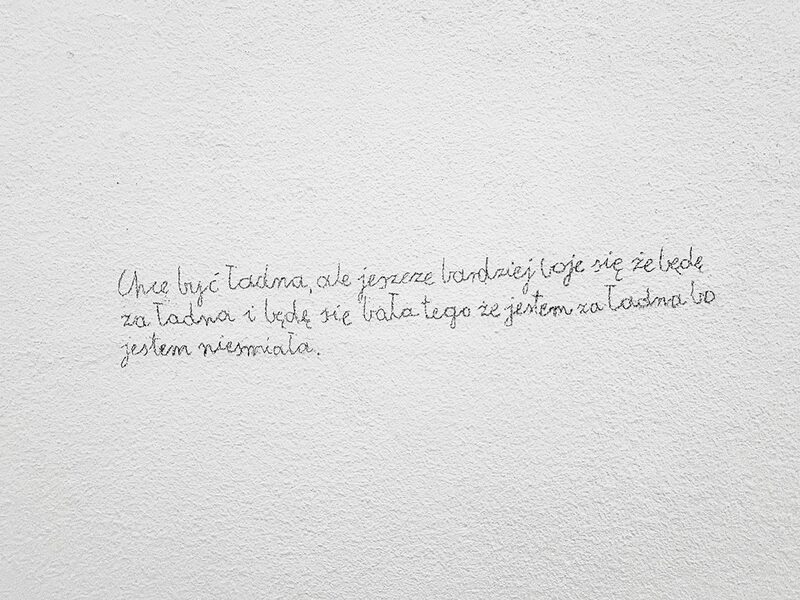 Chce być ładna, ale jeszcze bardziej boje się że będę
za ładna i będę się bała tego że jestem za ładna bo
jestem nieśmiała.